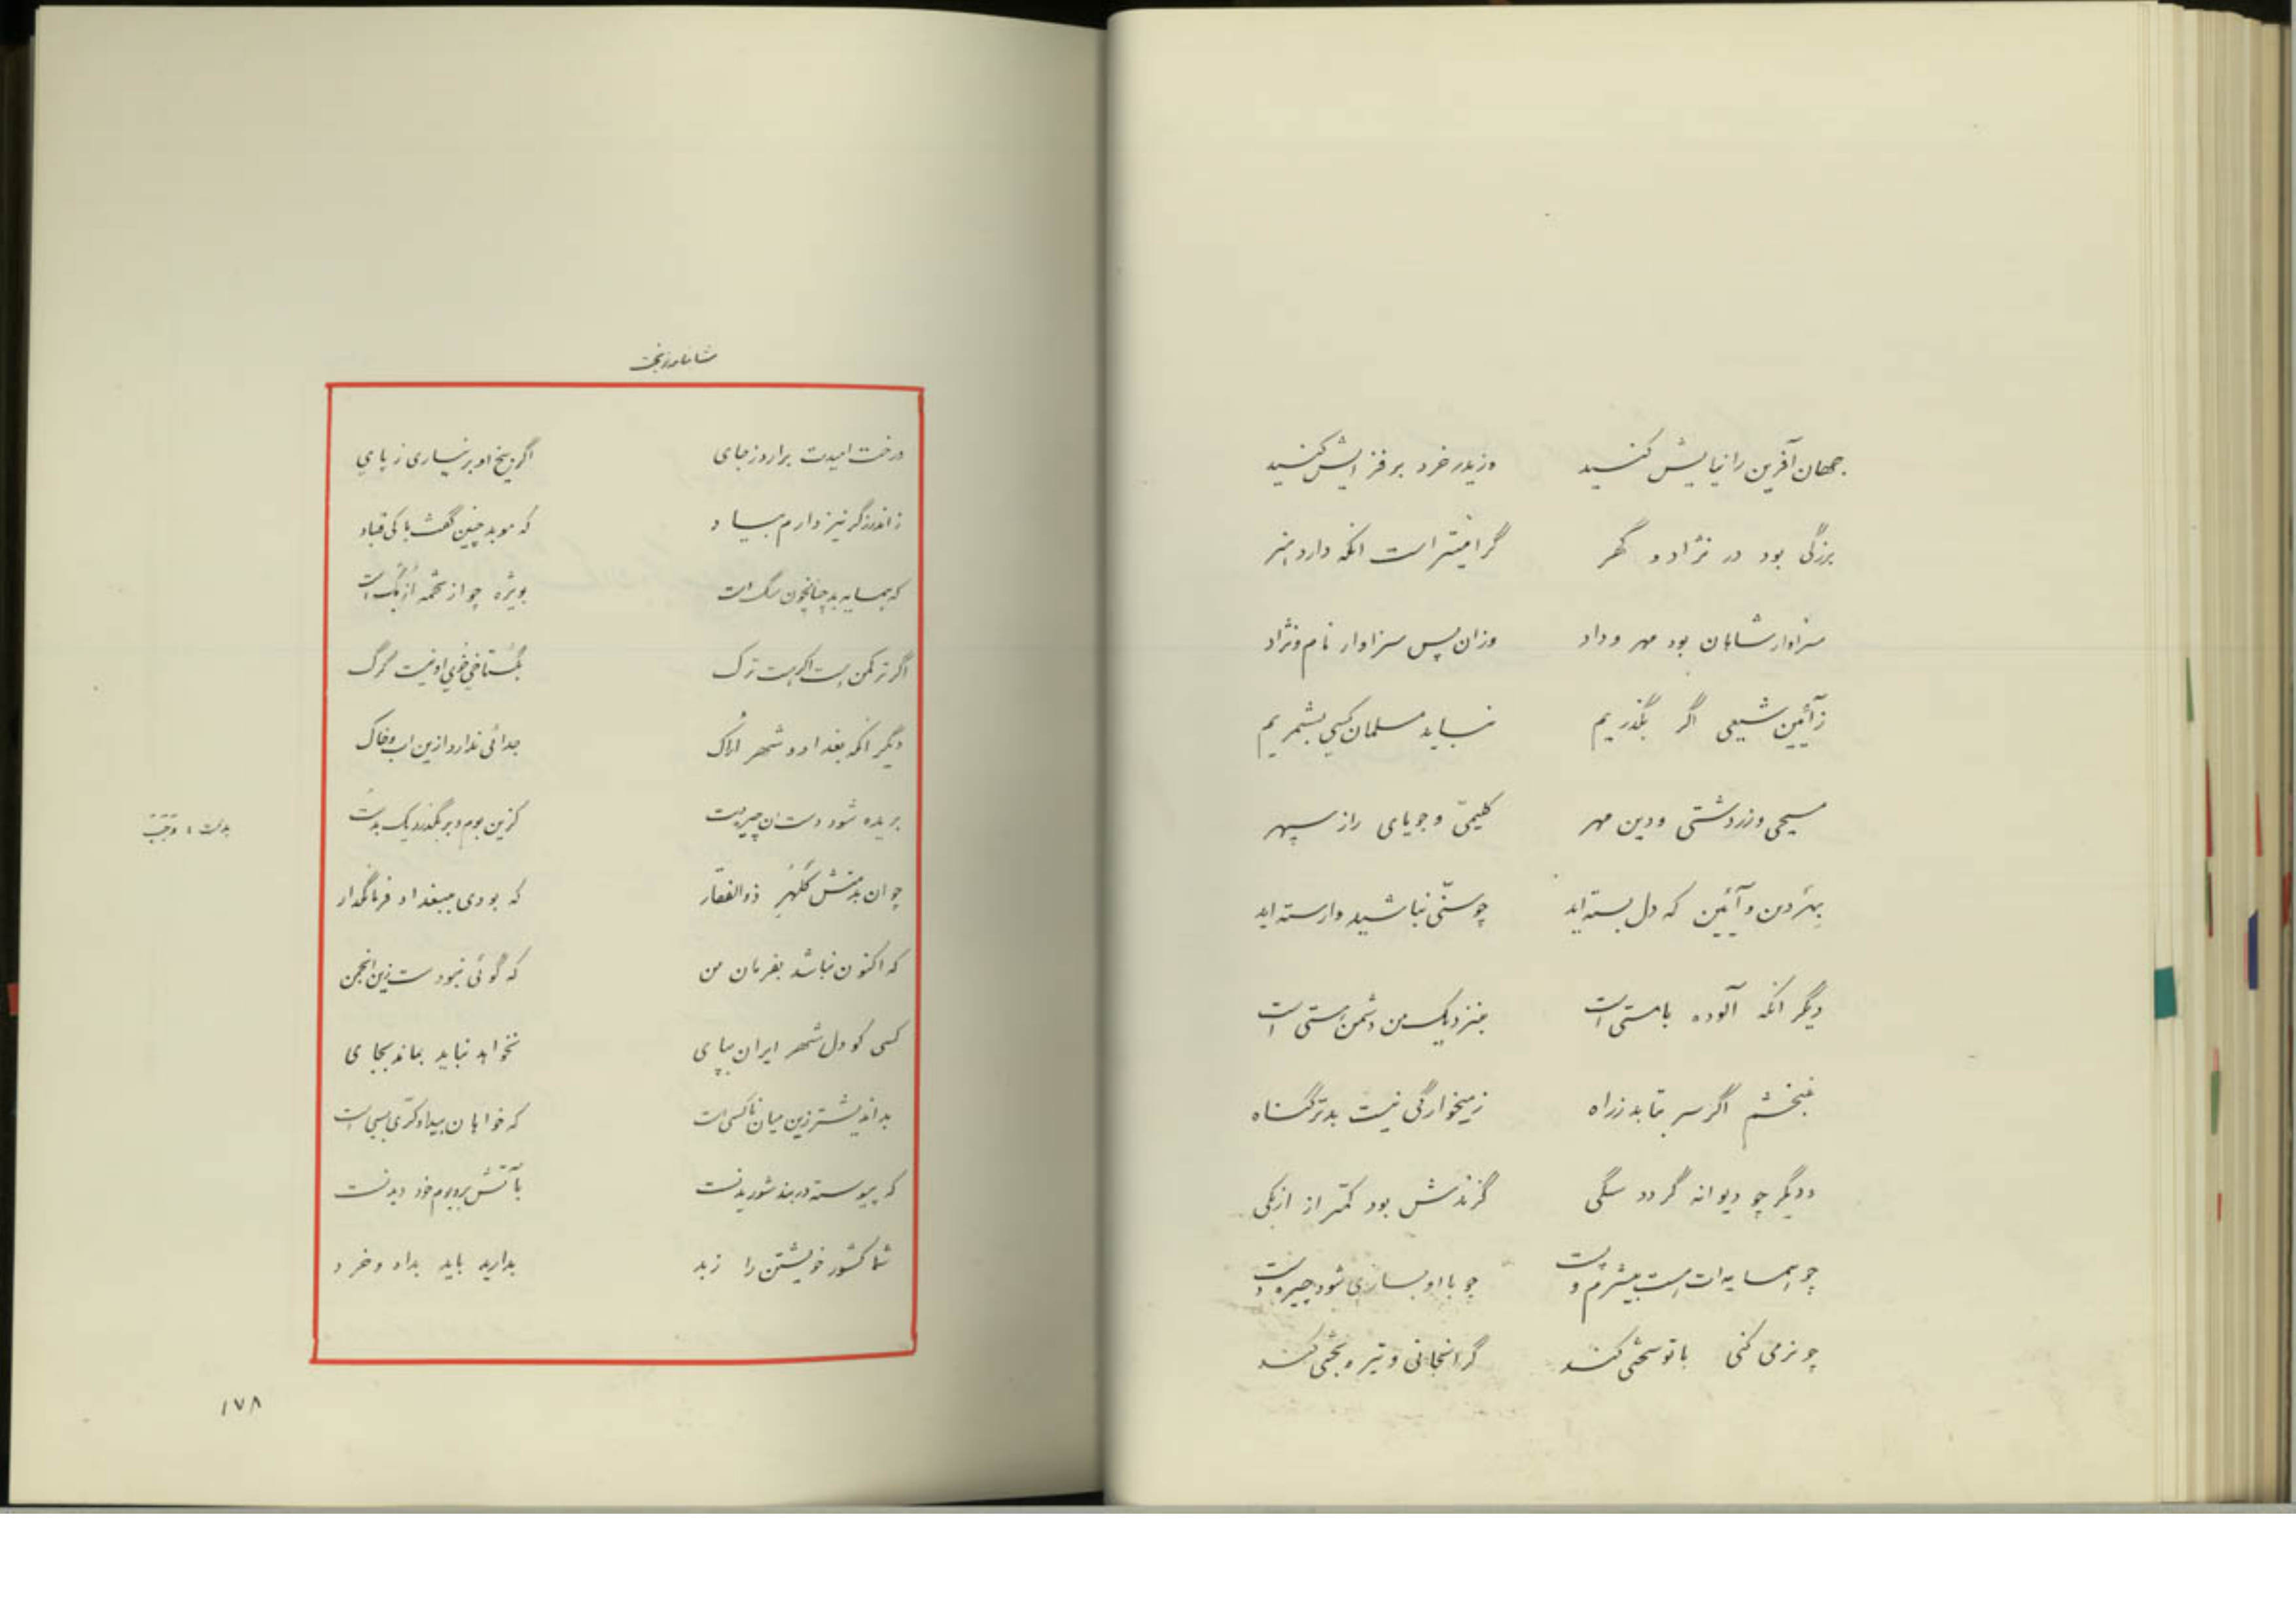 جهان آفرین را نیایش کنید وزیدر خرد بر فزایش کنید
بزرگی بود در نژاد و گهر گرامیتر است انکه دارد هنر
سزاوار شاهان بود مهر و داد وزان پس سزاوار نام و نژاد
ز آئین شیعی اگر بگذریم نباید مسلمان کسی بشمریم
مسیحی و زردشتی و دین مهر کلیمیّ و جویای راز سپهر
بهر دین و آئین که دل بسته‌اید چو سنّی نباشید وارسته‌اید
دیگر انکه آلوده با مستی است بنزدیک من دشمن هستی است
نبخشم اگر سر بتابد ز راه ز میخوارگی نیست بدتر گناه
و دیگر چو دیوانه گردد سگی گزندش بود کمتر از ازبکی
چو همسایه‌ات هست بیشرم و پست چو با او بسازی شود چیره دست
چو نرمی کنی با تو سختی کند گرانجانی و تیره بختی کند
درخت امیدت برارد ز جای اگر بیخ او بر نیاری ز پای
ز اندرزگر نیز دارم بیاد که موبد چنین گفت با کی‌قباد
که همسایه بد چنانچون سگ است بویژه چو از تخمه اُزبُک است
اگر ترکمن هست اگر هست ترک بگستاخی خوی او نیست گرگ
دیگر انکه بغداد و شهر اراک جدائی ندارد ازین اب و خاک
بریده شود دستان چیره دست کزین بوم و بر بگذرد یک بدست
چو ان بدمنش کلهر ذوالفقار که بودی ببغداد فرمانگذار
که اکنون نباشد بفرمان من که گوئی نبودست زین انجمن
کسی کو دل شهر ایران بپای نخواهد نباید بماند بجای
بداندیشتر زین میان ناکسی است که خواهان بیدادگری بسی است
که پیوسته در بند شوریدنست بآتش بر و بوم خود دیدنست
شما کشور خویشتن را ز بد بدارید باید بداد و خرد
بدست : وجب
۱۷۸